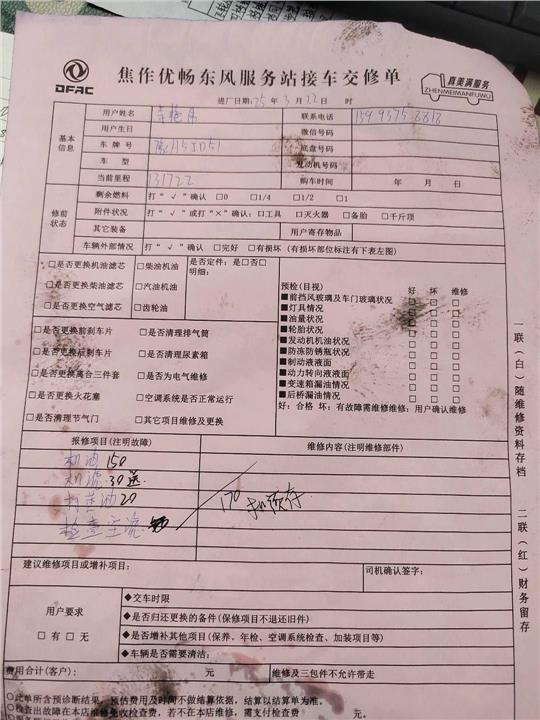 DFAC
焦作优畅东风服务站接车交修单
真美满服务
ZHENMEIMANFUWU
进厂日期:25年3月22日 时
基本信息
用户姓名
联系电话
用户生日
微信号码
车牌号
底盘号码
车型
发动机号码
当前里程 131722
购车时间 年 月 日
修前状态
剩余燃料 打“√”确认 □0 □1/4 □1/2 □1
附件状况 打“√”或打“×”确认:□工具 □灭火器 □备胎 □千斤顶
其它装备
用户寄存物品
车辆外部情况 打“√”确认 □完好 □有损坏(有损坏部位标注有下表左图)
□是否更换机油滤芯 □柴油机油 是否定件:是□否□
明细:
□是否更换柴油滤芯 □汽油机油
□是否更换空气滤芯 □齿轮油
□是否更换前刹车片 □是否清理排气筒
□是否更换后刹车片 □是否清理尿素箱
□是否更换离合三件套 □是否为电气维修
□是否更换火花塞 □空调系统是否正常运行
□是否清理节气门 □其它项目维修及更换
预检(目视) 好 坏 维修
■前挡风玻璃及车门玻璃状况 □ □ □
■灯具情况 □ □ □
■油量状况 □ □ □
■轮胎状况 □ □ □
■发动机机油状况 □ □ □
■防冻防锈瓶状况 □ □ □
■制动液液面 □ □ □
■动力转向液液面 □ □ □
■变速箱漏油情况 □ □ □
■后桥漏油情况 □ □ □
好:合格 坏:有故障需维修维修:用户确认维修
报修项目(注明故障)
维修内容(注明维修部件)
机油 150
机滤 30 送
打黄油 20
170 扣预存
建议维修项目或增补项目:
司机确认签字:
用户要求
□有 □无
◆交车时限
◆是否归还更换的备件(保修项目不退还旧件)
◆是否增补其他项目(保养、年检、空调系统检查、加装项目等)
◆车辆是否需要清洁:
费用合计(客户): 元
维修及三包件不允许带走
○此单所含预诊断结果、预估费用及时间不做结算依据,结算以结算单为准。
○检查出故障在本店维修免收检查费,若不在本店维修,需支付检查费 元
一联(白)随维修资料存档
二联(红)财务留存